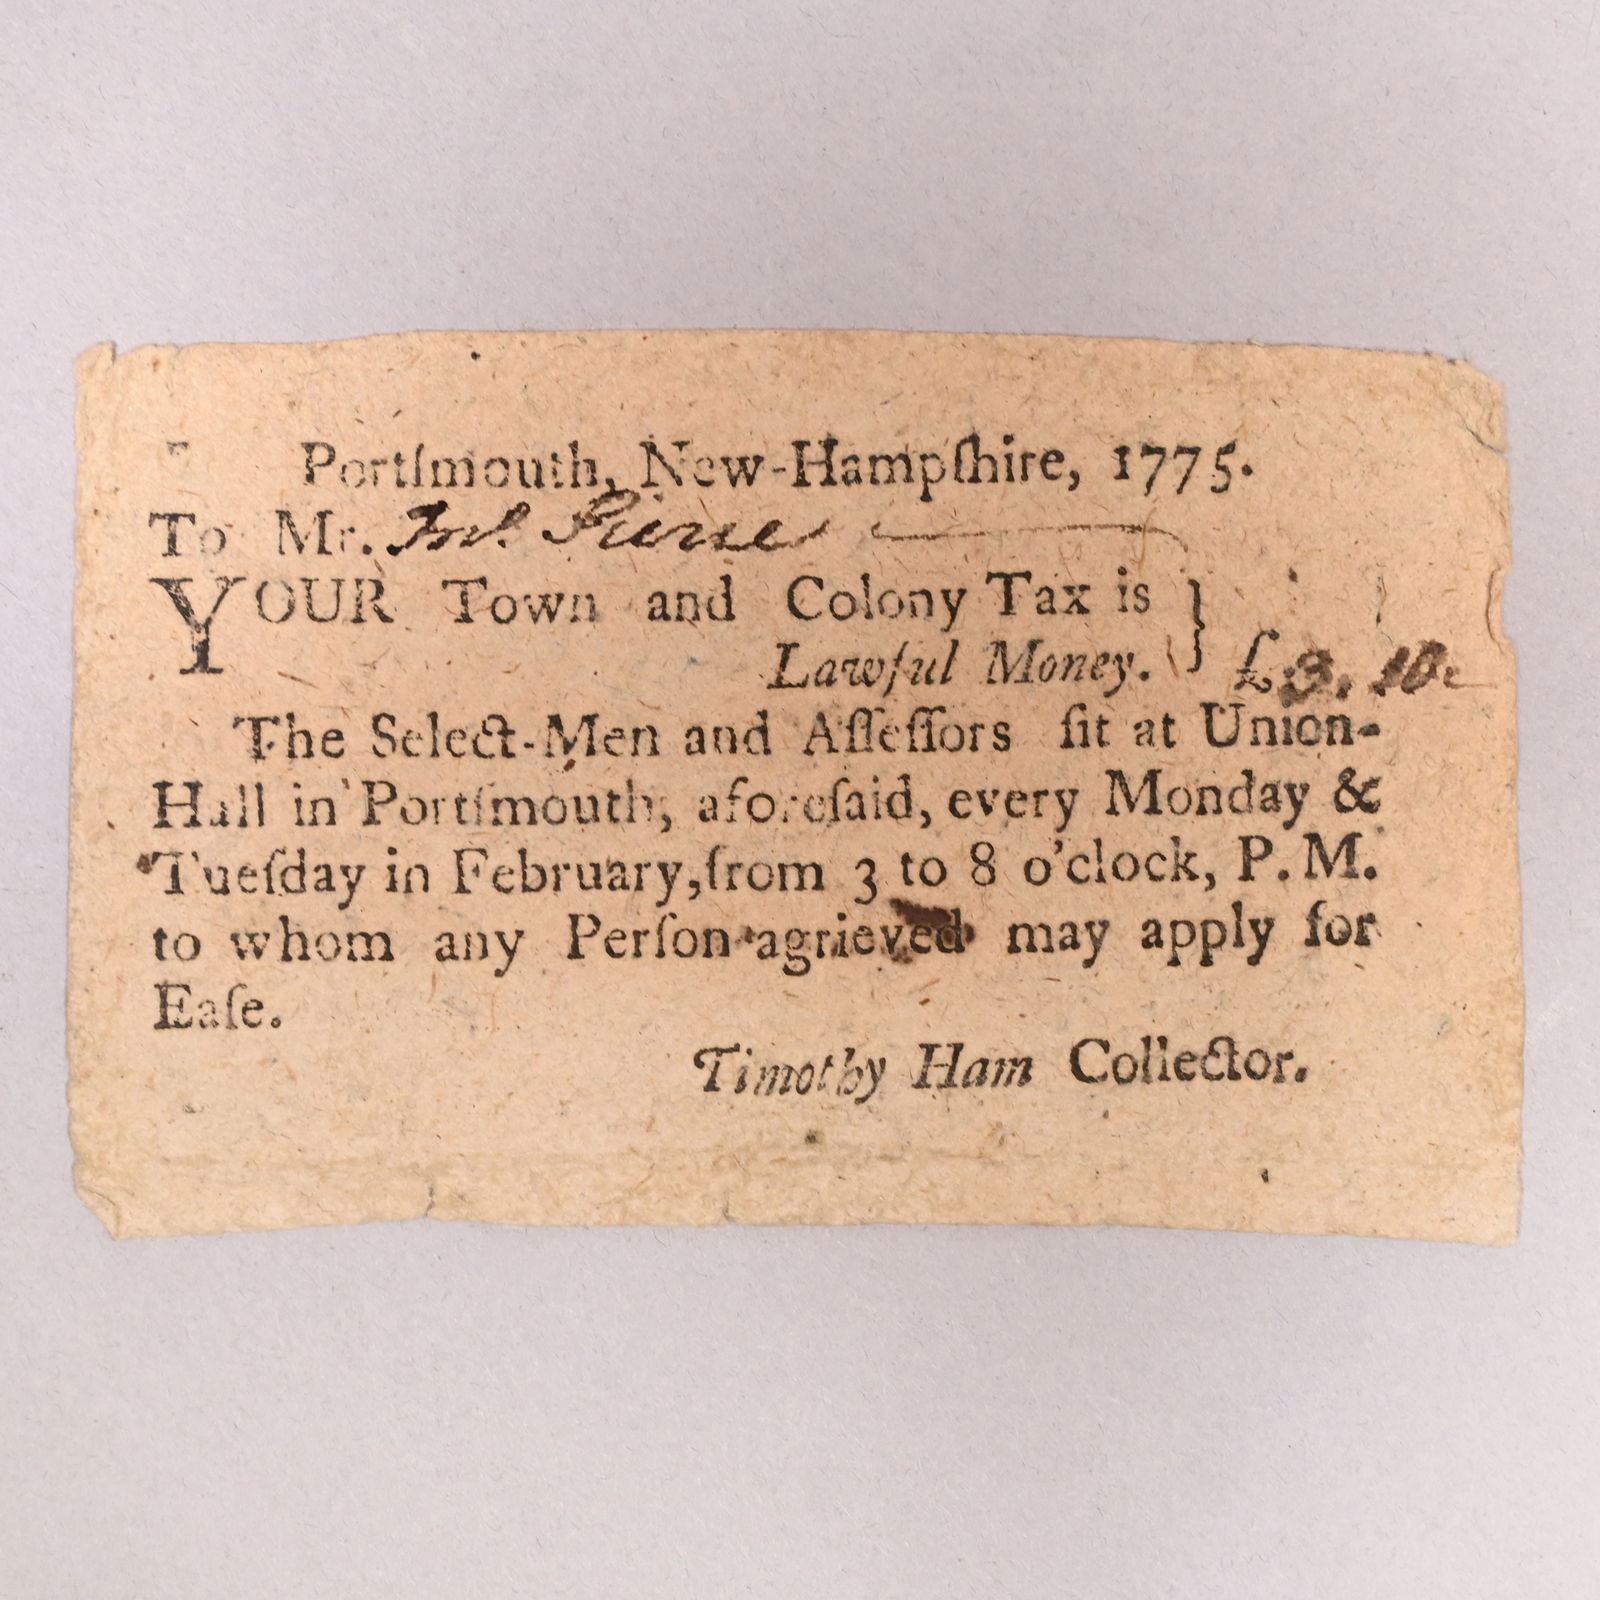 Portſmouth, New-Hampſhire, 1775.
To Mr. Jnº. Peirse
YOUR Town and Colony Tax is
Lawful Money. } £3. 10.
The Select-Men and Aſſeſſors ſit at Union-
Hall in Portſmouth, aforeſaid, every Monday &
Tueſday in February, from 3 to 8 o'clock, P. M.
to whom any Perſon agrieved may apply for
Eaſe.
Timothy Ham Collector.